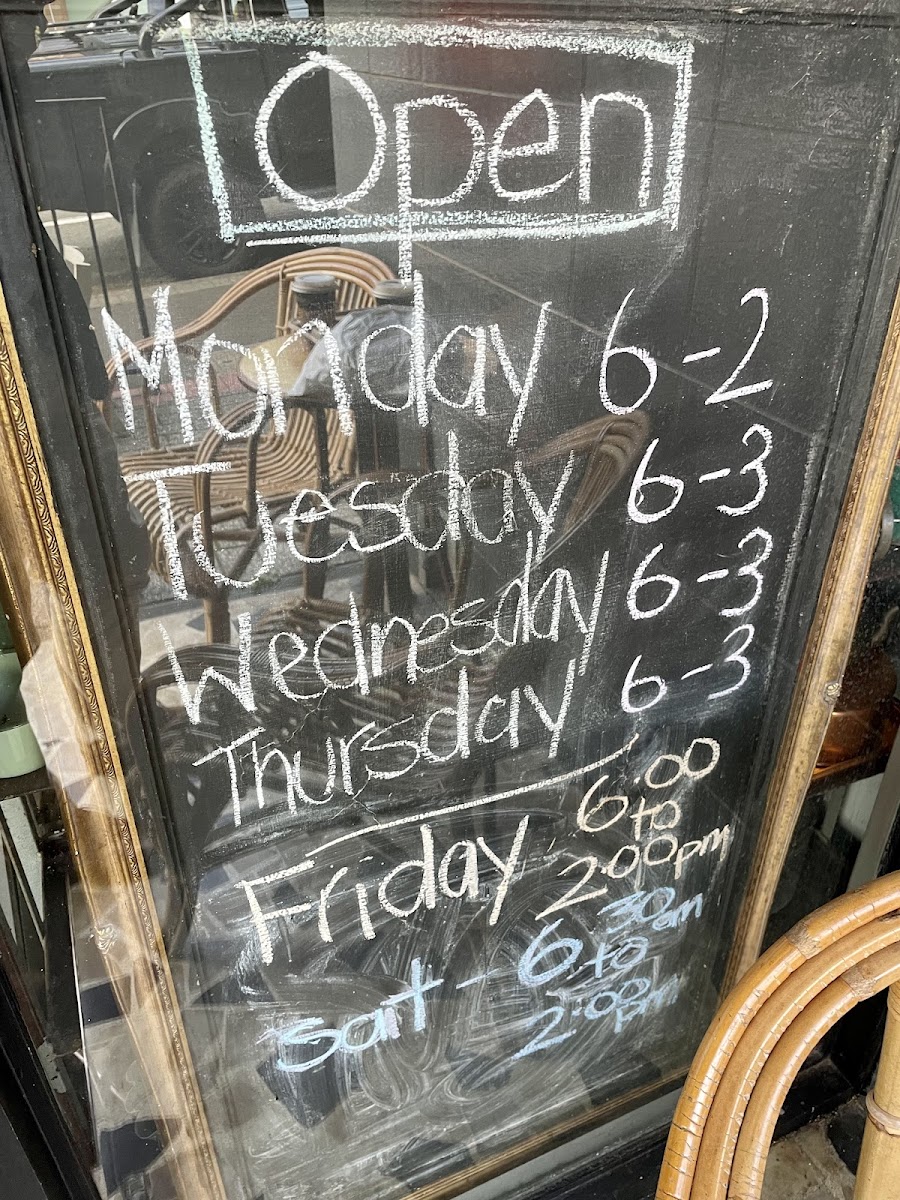 Open
Monday 6-2
Tuesday 6-3
Wednesday 6-3
Thursday 6-3
Friday 6:00
to
2:00pm
sat - 6:30am
to
2:00pm